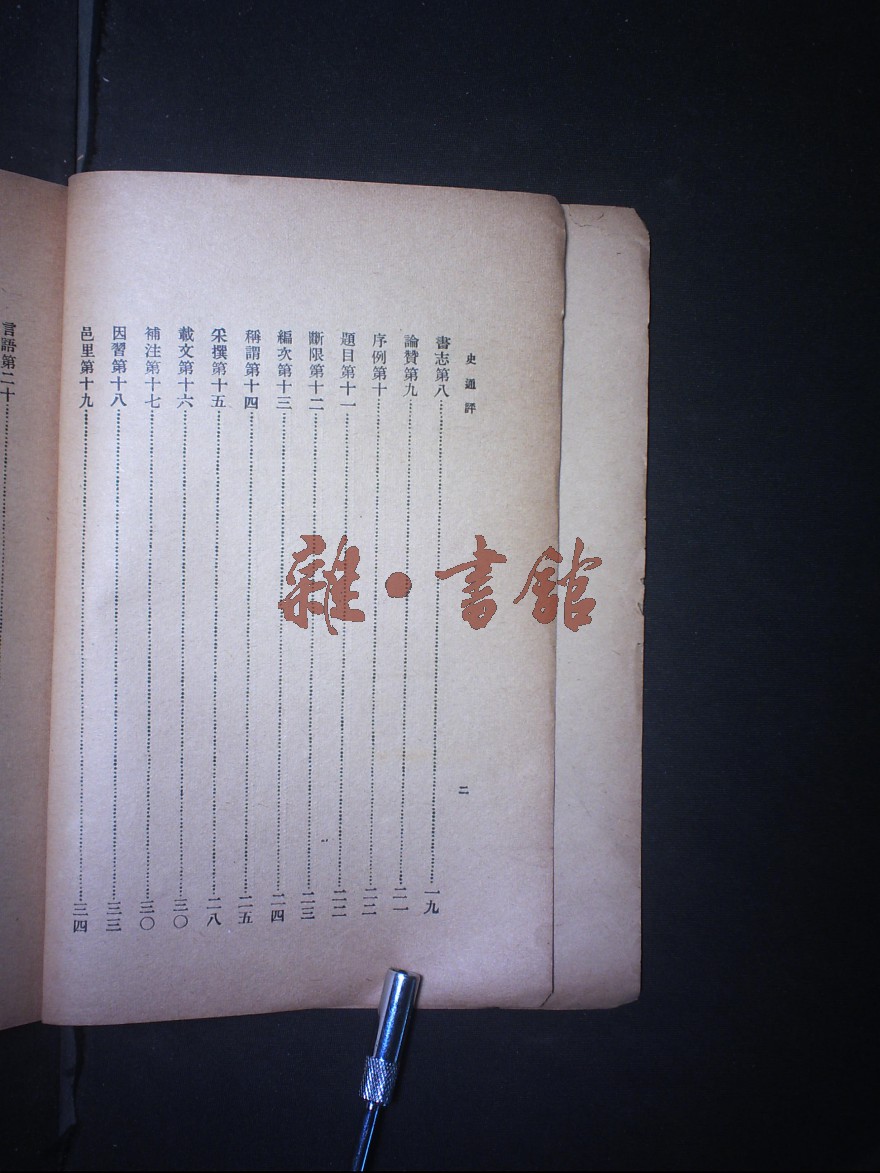 史通評
二
書志第八……一九
論贊第九……二一
序例第十……二二
題目第十一……二二
斷限第十二……二三
編次第十三……二四
稱謂第十四……二五
采撰第十五……二八
載文第十六……三〇
補注第十七……三〇
因習第十八……三三
邑里第十九……三四
言語第二十……
雜·書館